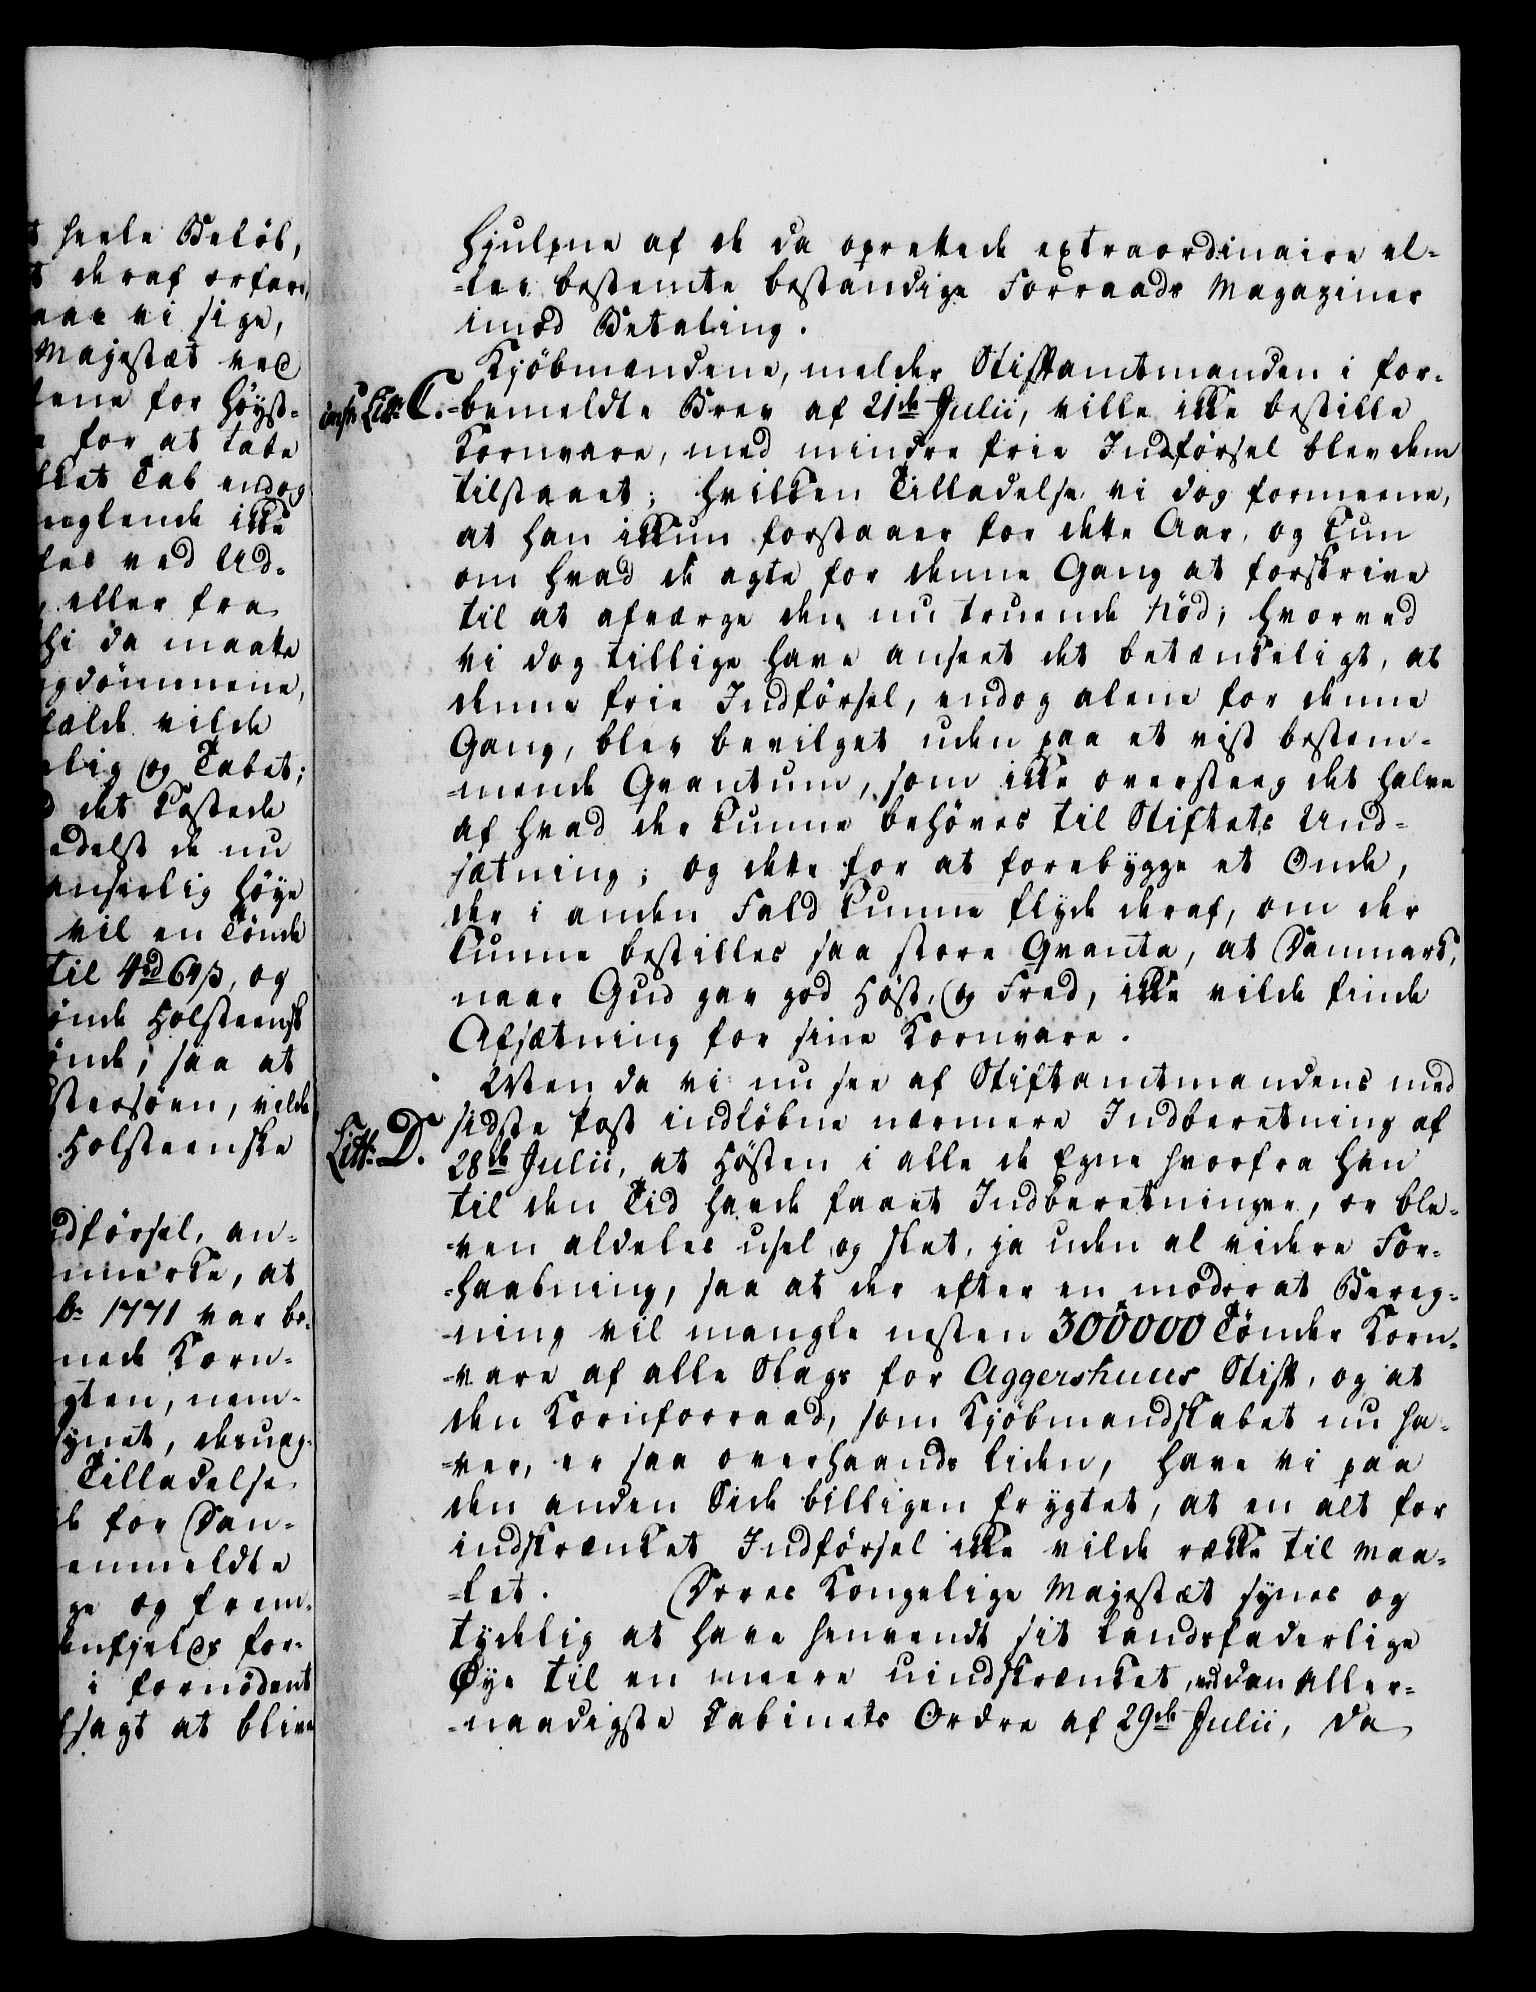 t heele Beløb,
t deraf erfare,
aae vi sige,
Majestæt ved
lene for Høyst-
e for at tabe
lket Tab endog
nglende ikke
les ved Ud-
, eller fra
hi da maatte
gdømmene,
fælde vilde
elig og Tabet;
d det kostede
edelst de nu
anseelig høye
vil en Tønde
til 4rd 64ß, og
ønde Holsteensk
ønde, saa at
stersøen, vilde
Holsteenske
ndførsel, an-
nmerke, at
br 1771 var be-
nede Korn-
gten, nem-
synet, desuag-
Tilladelse
de for Dan-
enmeldte
ge og frem-
enfjelds for-
i fornødent
hsagt at blive
hjulpne af de da oprettede extraordinaire el-
-ler bestemte bestandige Forraads Magaziner
imod Betaling.
Kjøbmændene, melder Stiftamtmanden i for-
Litr: C. -bemeldte Brev af 21de Julii, ville ikke bestille
Kornvare, med mindre frie Indførsel blev dem
tilstaaet; hvilken Tilladelse vi dog formeene,
at han ikkun forstaaer for dette Aar, og kun
om hvad de agte for denne Gang at forskrive
til at afværge den nu truende Nød; hvorved
vi dog tillige have anseet det betænkeligt, at
denne frie Indførsel, endog alene for denne
Gang, blev bevilget uden paa et vist bestem-
-mende Qvantum, som ikke oversteeg det halve
af hvad der kunne behøves til Stiftets Und-
sætning; og dette for at forebygge et Onde,
der i anden Fald kunne flyde deraf, om der
kunne bestilles saa store Qvanta, at Danmark,
naar Gud gav god Høst, og Fred, ikke vilde finde
Afsætning for sine Kornvare.
Men da vi nu see af Stiftamtmandens med
sidste Post indløbne nærmere Indberetning af
Litr: D. 28de Julii, at Høsten i alle de Egne hvorfra han
til den Tid havde faaet Indberetninger, er ble-
-ven aldeles usel og slet, ja uden al videre For-
-haabning, saa at der efter en moderat Bereg-
-ning vil mangle nesten 300000 Tønder Korn-
-vare af alle Slags for Aggershuus Stift, og at
den Kornforraad, som Kjøbmandskabet nu ha-
-ver, er saa overhaands liden, have vi paa
den anden Side billigen frygtet, at en alt for
indskrænket Indførsel ikke vilde række til Maa-
-let. Deres Kongelige Majestæt synes og
tydelig at have henvendt sit landsfaderlige
Øye til en meere uindskrænket, ved den Aller-
-naadigste Cabinets Ordre af 29de Julii, da